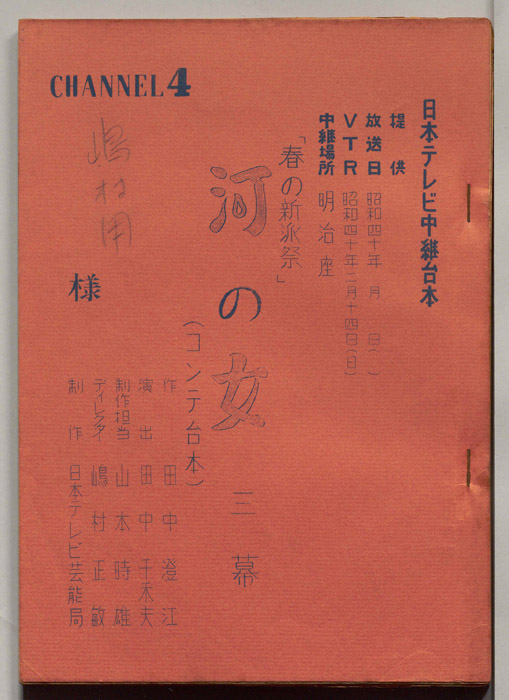 日本テレビ中継台本
提供
放送日 昭和四十年 月 日( )
VTR 昭和四十年三月十四日(日)
中継場所 明治座
「春の新派祭」
河の女 三幕
(コンテ台本)
作 田中澄江
演出 田中千禾夫
制作担当 山本時雄
ディレクター 嶋村正敏
制作 日本テレビ芸能局
CHANNEL4
嶋村用
様